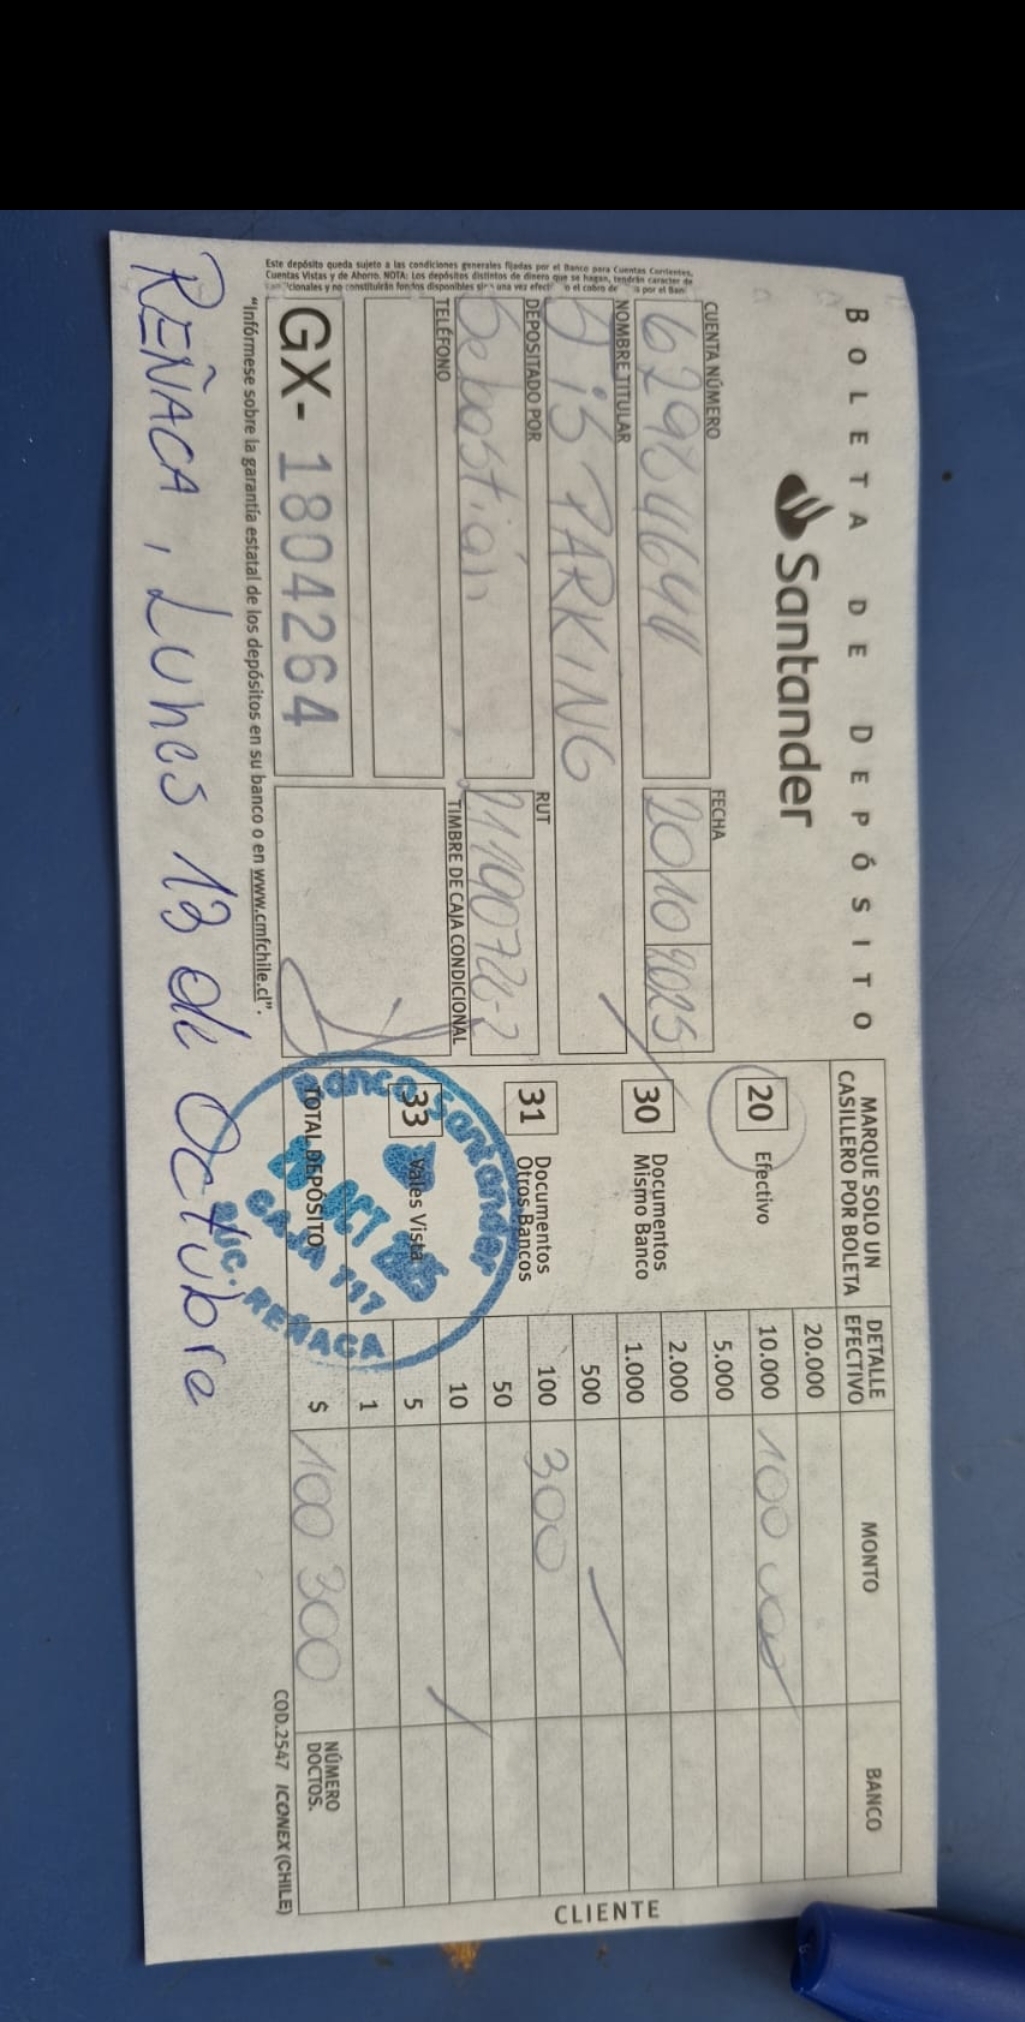 BOLETA DE DEPÓSITO
Santander
CUENTA NÚMERO
FECHA
20 10 2025
NOMBRE TITULAR
PARKING
DEPOSITADO POR
RUT
Sebastián
TELÉFONO
TIMBRE DE CAJA CONDICIONAL
GX- 1804264
Este depósito queda sujeto a las condiciones generales fijadas por el Banco para Cuentas Corrientes,
Cuentas Vistas y de Ahorro. NOTA: Los depósitos distintos de dinero que se hagan, tendrán caracter de
cionales y no constituirán fondos disponibles sin una vez o el cobro de por el Ban
"Infórmese sobre la garantía estatal de los depósitos en su banco o en www.cmfchile.cl".
REÑACA, Lunes 13 de Octubre
MARQUE SOLO UN
CASILLERO POR BOLETA
20 Efectivo
30 Documentos
Mismo Banco
31 Documentos
Otros Bancos
33 Vales Vista
TOTAL DEPÓSITO
Banco Santander
OCT
CAJA
SUC. REÑACA
DETALLE
EFECTIVO
MONTO
BANCO
20.000
10.000 100 000
5.000
2.000
1.000
500
100 300
50
10
5
1
$ 100 300
NÚMERO
DOCTOS.
COD.2547 ICONEX (CHILE)
CLIENTE